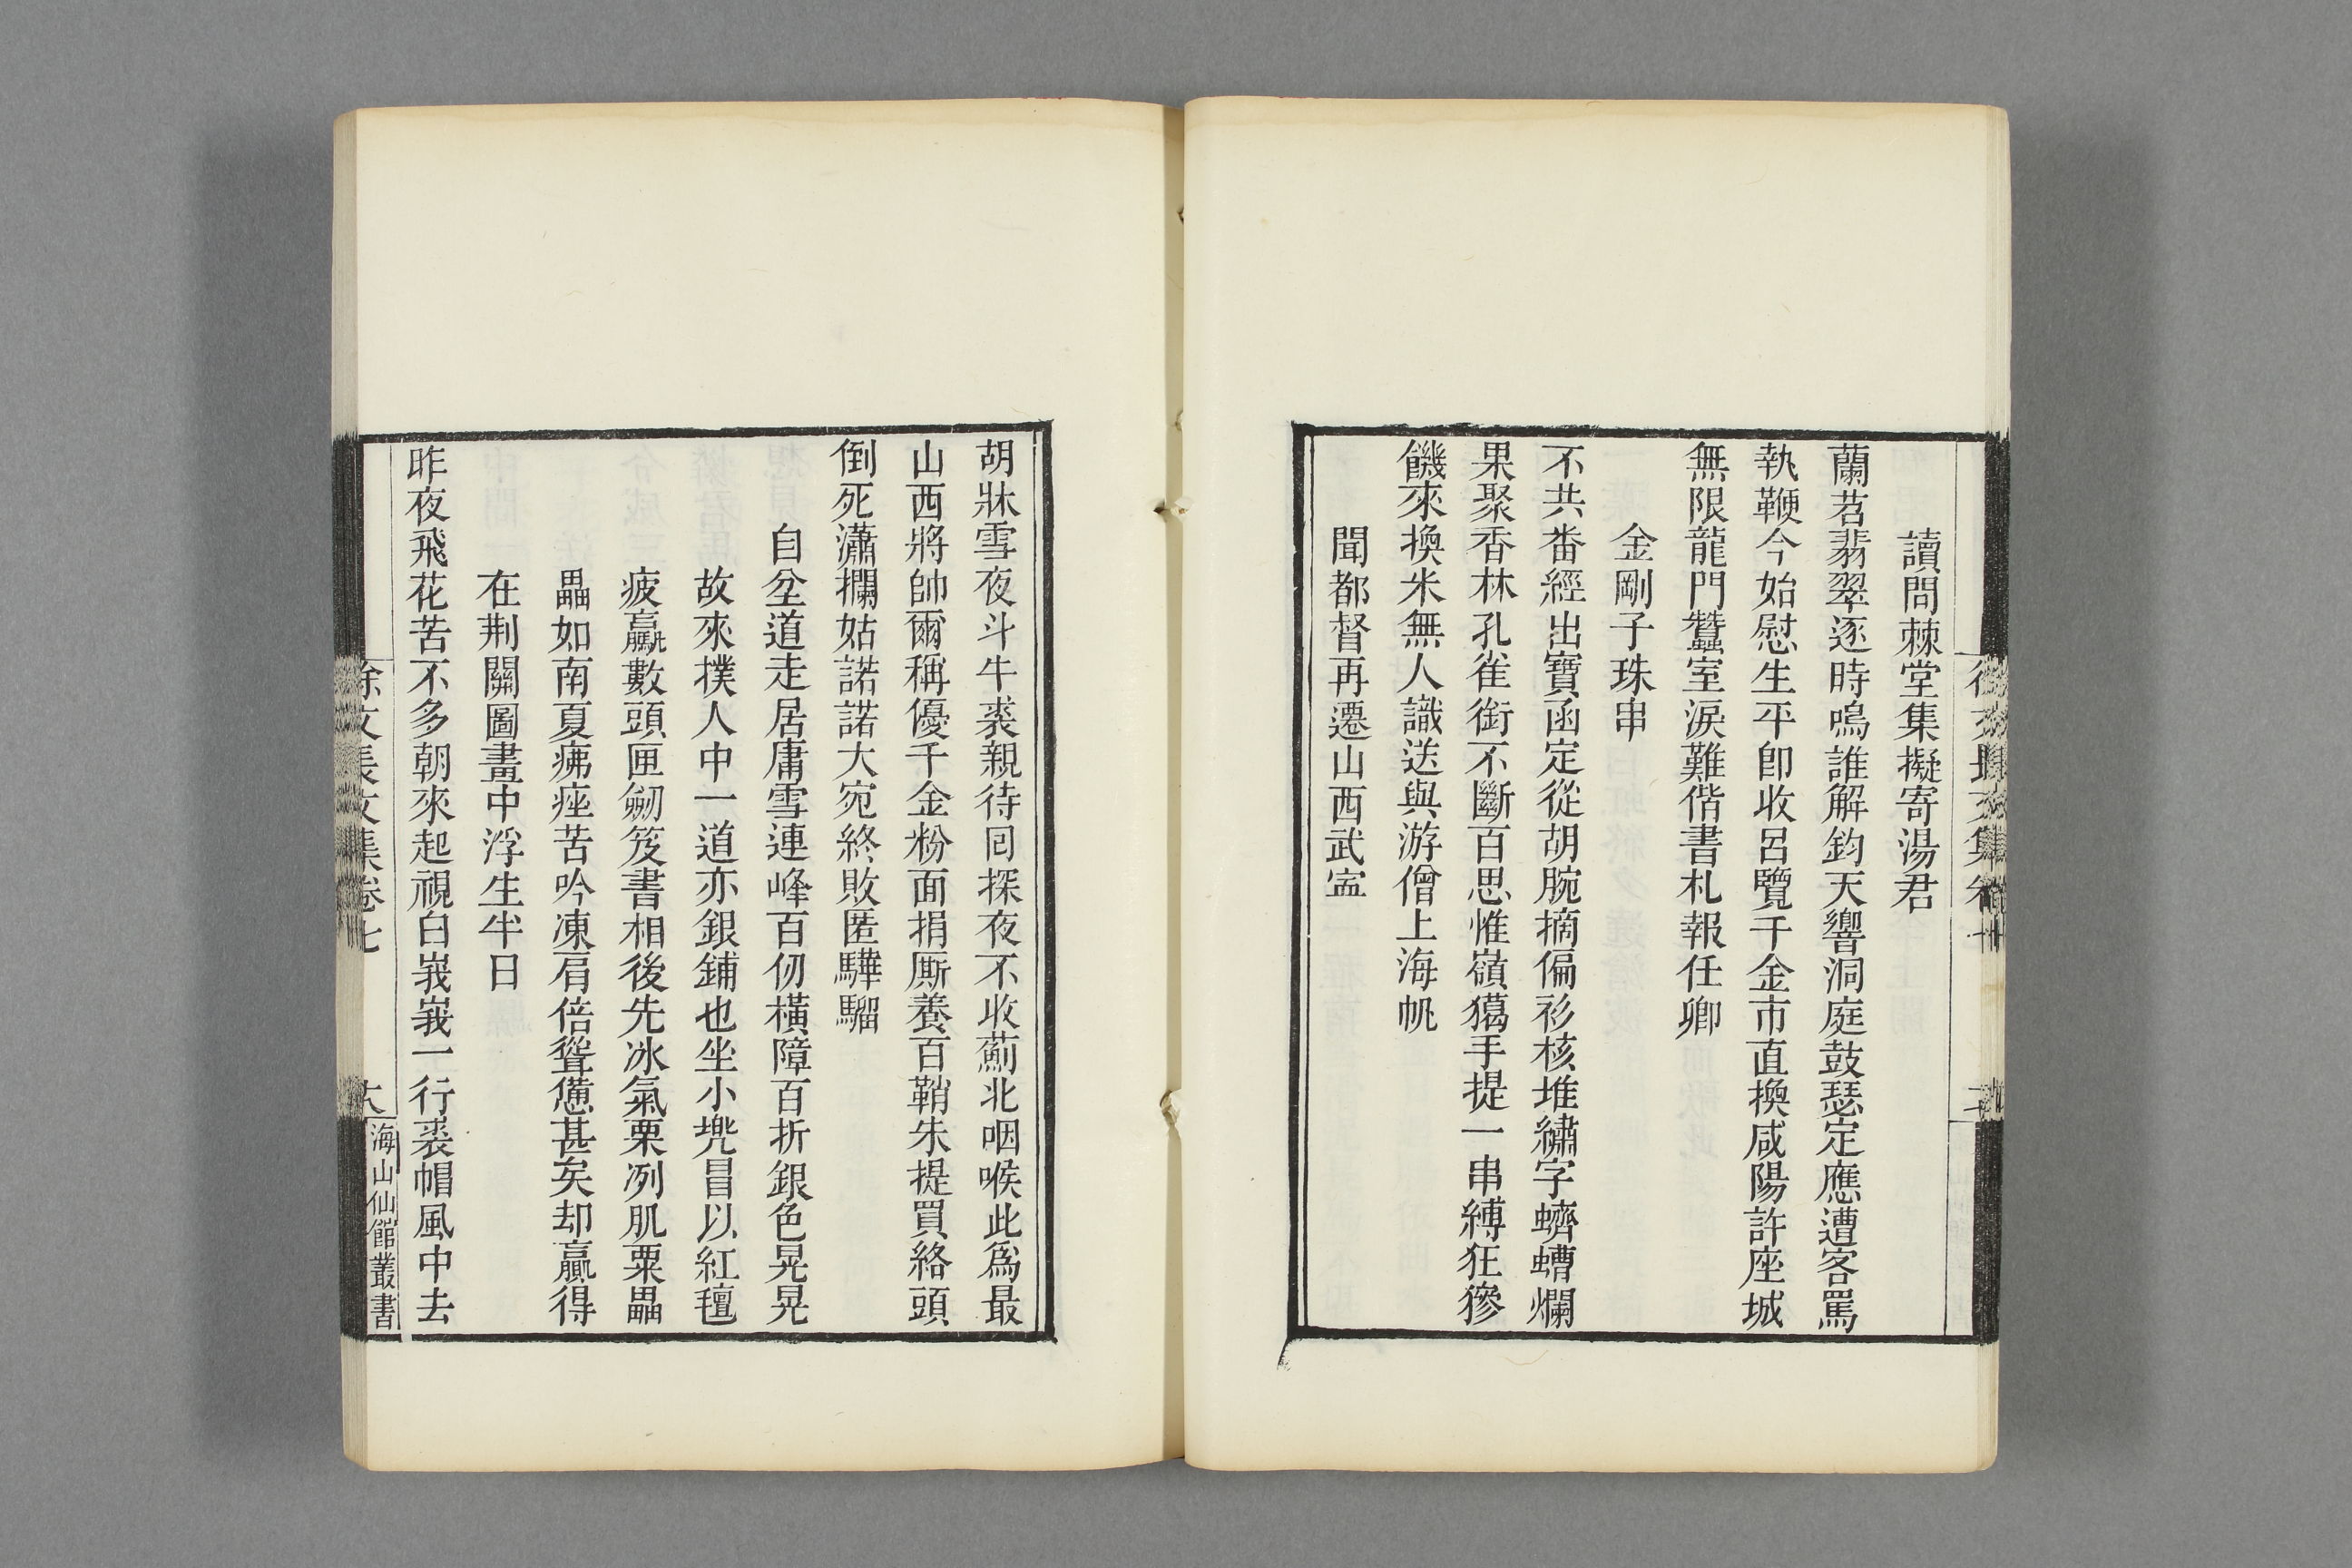 讀問棘堂集擬寄湯君
蘭苕翡翠逐時鳴誰解鈞天響洞庭鼓瑟定應遭客罵
執鞭今始慰生平卽收呂覽千金市直換咸陽許座城
無限龍門蠶室淚難偕書札報任卿
金剛子珠串
不共番經出寶函定從胡腕摘偏衫核堆繡字蠐螬爛
果聚香林孔雀銜不斷百思惟嶺獦手提一串縛狂㺑
饑來換米無人識送與游僧上海帆
聞都督再遷山西武寍
胡牀雪夜斗牛裘親待囘探夜不收薊北咽喉此爲最
山西將帥爾稱優千金粉面捐厮養百鞘朱提買絡頭
倒死瀟攔姑諾諾大宛終敗匿驊騮
自坌道走居庸雪連峰百仞橫障百折銀色晃晃
故來撲人中一道亦銀鋪也坐小兠冒以紅氊
疲羸數頭匣劒笈書相後先冰氣栗冽肌粟畾
畾如南夏疿痤苦吟凍肩倍聳憊甚矣却贏得
在荆關圖畫中浮生半日
昨夜飛花苦不多朝來起視白峩峩一行裘帽風中去
徐文長文集卷七
海山仙館叢書